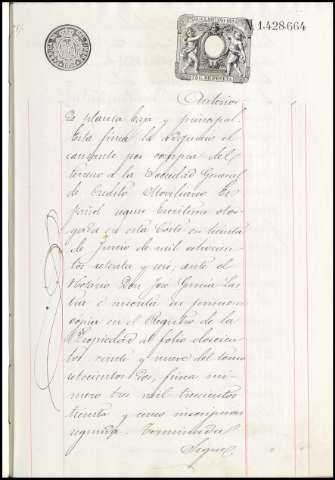 1.428.664
Anterior
de planta baja y principal.
Esta finca la adquirio el
causante por compra del
terreno a la Sociedad General
de Credito Moviliario Es
pañol segun escritura otor
gada en esta Corte en treinta
de Junio de mil ochocien
tos setenta y seis, ante el
Notario Don José Garcia Las
tra é inscrita su primera
copia en el Registro de la
Propiedad al folio doscien
tos veinte y nueve del tomo
ochocientos dos, finca nú
mero tres mil trescientos
treinta y cinco inscripcion
segunda. Terminada